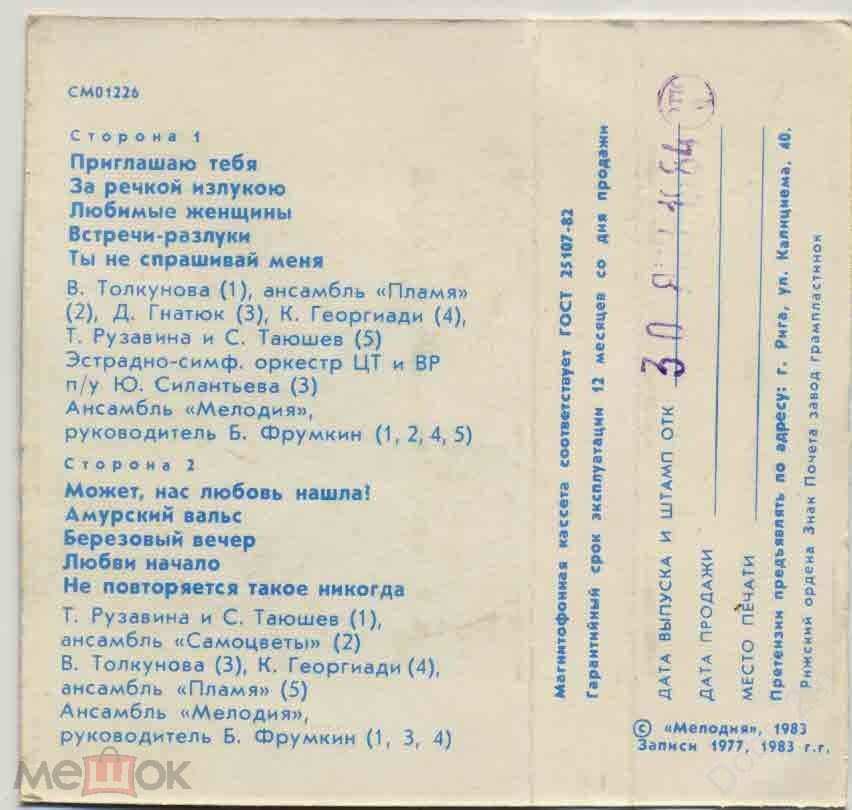 СМ01226
Сторона 1
Приглашаю тебя
За речкой излукою
Любимые женщины
Встречи-разлуки
Ты не спрашивай меня
В. Толкунова (1), ансамбль «Пламя»
(2), Д. Гнатюк (3), К. Георгиади (4),
Т. Рузавина и С. Таюшев (5)
Эстрадно-симф. оркестр ЦТ и ВР
п/у Ю. Силантьева (3)
Ансамбль «Мелодия»,
руководитель Б. Фрумкин (1, 2, 4, 5)
Сторона 2
Может, нас любовь нашла?
Амурский вальс
Березовый вечер
Любви начало
Не повторяется такое никогда
Т. Рузавина и С. Таюшев (1),
ансамбль «Самоцветы» (2)
В. Толкунова (3), К. Георгиади (4),
ансамбль «Пламя» (5)
Ансамбль «Мелодия»,
руководитель Б. Фрумкин (1, 3, 4)
Магнитофонная кассета соответствует ГОСТ 25107-82
Гарантийный срок эксплуатации 12 месяцев со дня продажи
ДАТА ВЫПУСКА И ШТАМП ОТК
ДАТА ПРОДАЖИ
МЕСТО ПЕЧАТИ
Претензии предъявлять по адресу: г. Рига, ул. Калнциема, 40,
Рижский ордена Знак Почета завод грампластинок
© «Мелодия», 1983
Записи 1977, 1983 г.г.
мешок